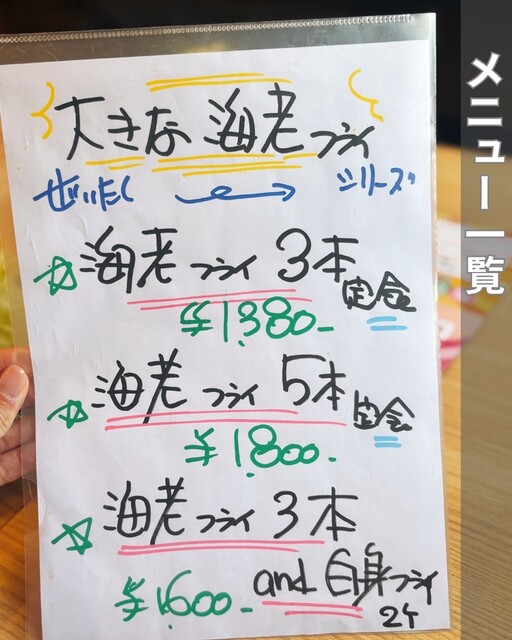 メニュー一覧
大きな海老フライ
ぜいたく シリーズ
☆海老フライ3本定食
¥1,380-
☆海老フライ5本定食
¥1,800-
☆海老フライ3本
¥1,600- and白身フライ
2ケ